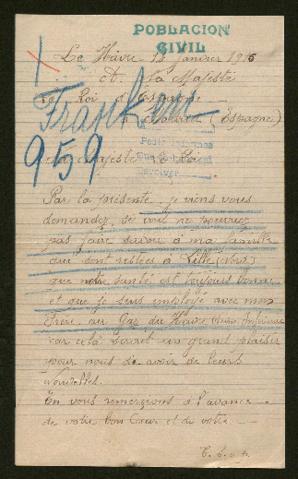 POBLACION
CIVIL
Le Havre 13 janvier 1915
A Sa Majesté
Le Roi d'Espagne
Madrid (Espagne)
Franken
959
Sa Majesté le Roi
Par la présente je viens vous
demandez si vous ne pourriez
pas faire savoir à ma famille
que sont restées à Lille (Nord)
que notre santé est toujours bonne
et que je suis employé avec mon
Frère au Gaz du Havre Seine Inférieure
car cela serait un grand plaisir
pour nous d'avoir de leurs
nouvelles.
En vous remerciant à l'avance
de votre bon Cœur et de votre